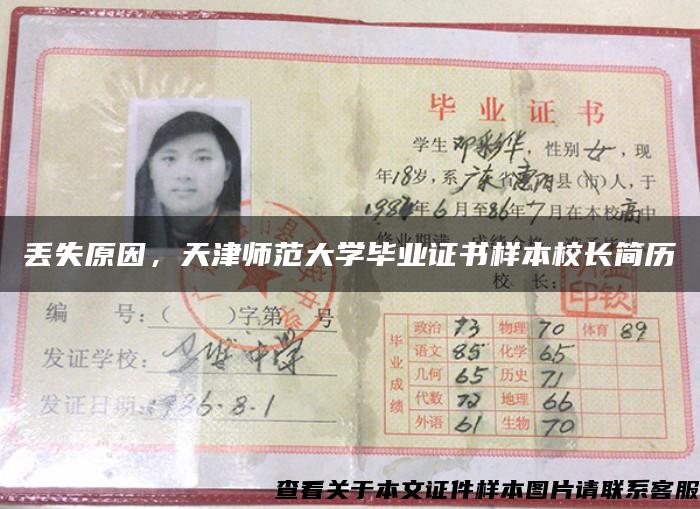 毕业证书
学生邓彩华，性别女，现
年18岁，系广东省惠阳县（市）人，于
1984年6月至86年7月在本校高中
丢失原因，天津师范大学毕业证书样本校长简历
校长：
编 号：（ ）字第 号
发证学校：
发证日期：1986.8.1
毕业成绩
政治 73 物理 70 体育 89
语文 85 化学 65
几何 65 历史 71
代数 72 地理 66
外语 61 生物 70
查看关于本文证件样本图片请联系客服